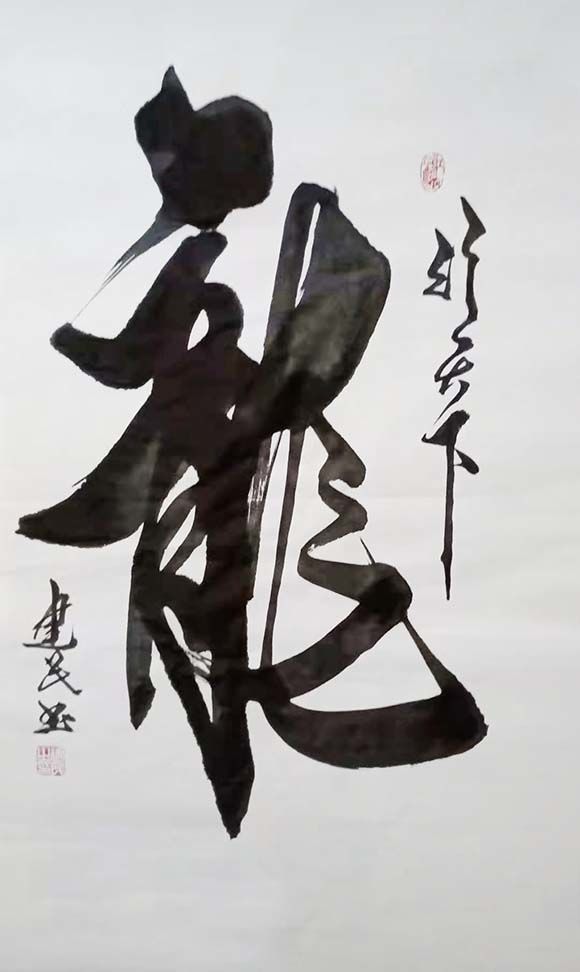 龍
行天下
建民书